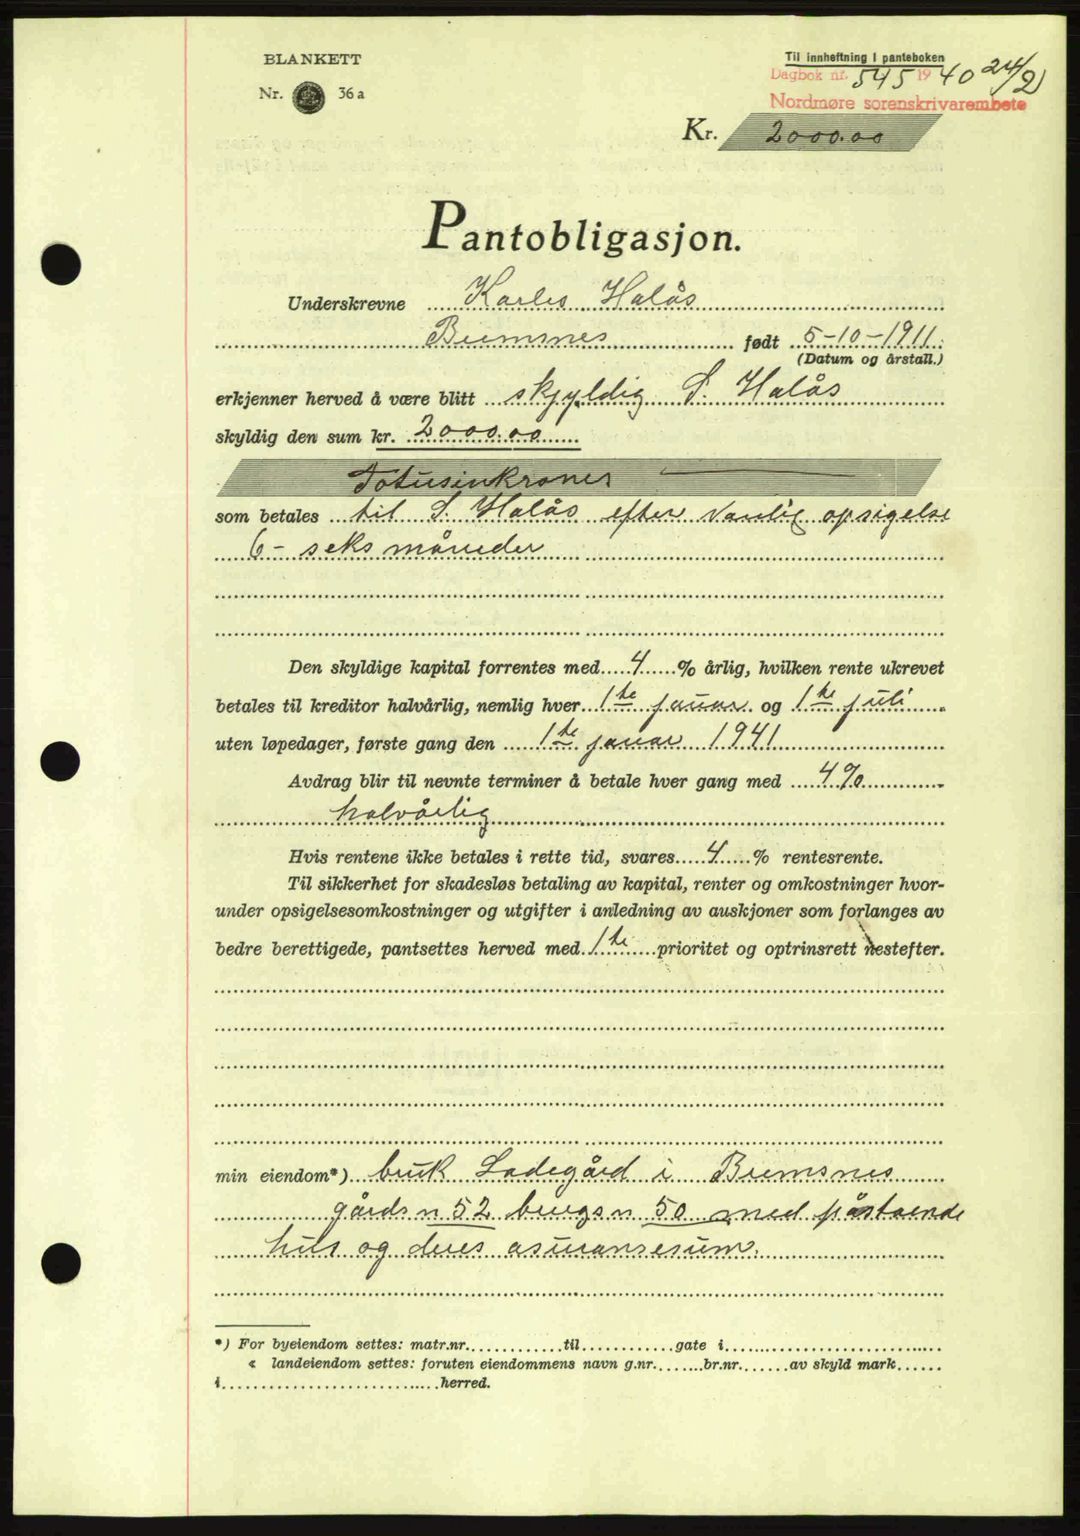 BLANKETT
Nr. 36a
Til innheftning i panteboken
Dagbok nr. 545 1940 24/2
Nordmøre sorenskrivarembete
Kr. 2000.00
Pantobligasjon.
Underskrevne Karles Halås
Bremsnes født 5-10-1911.
(Datum og årstall.)
erkjenner herved å være blitt skjyldig S. Halås
skyldig den sum kr. 2000.00
Totusinkroner
som betales til S. Halås efter vanlig opsigelse
6 - seks måneder
Den skyldige kapital forrentes med 4 % årlig, hvilken rente ukrevet
betales til kreditor halvårlig, nemlig hver 1te januar og 1te juli
uten løpedager, første gang den 1te januar 1941
Avdrag blir til nevnte terminer å betale hver gang med 4%
halvårlig
Hvis rentene ikke betales i rette tid, svares 4 % rentesrente.
Til sikkerhet for skadesløs betaling av kapital, renter og omkostninger hvor-
under opsigelsesomkostninger og utgifter i anledning av auskjoner som forlanges av
bedre berettigede, pantsettes herved med 1te prioritet og optrinsrett nestefter.
min eiendom*) bruk Ladegård i Bremsnes
gårds n 52 brugs n 50 med påstående
hus og deres asuransesum.
*) For byeiendom settes: matr.nr. til gate i
« landeiendom settes: foruten eiendommens navn g.nr. br.nr. av skyld mark
i herred.